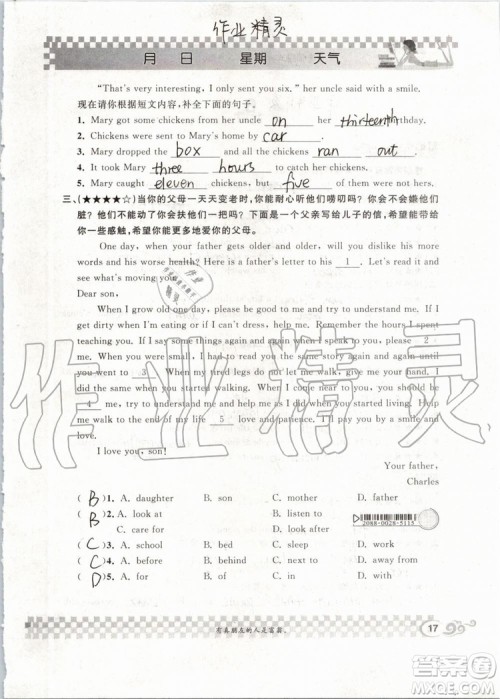 作业精灵
月 日 星期 天气
"That's very interesting, I only sent you six." her uncle said with a smile.
现在请你根据短文内容，补全下面的句子。
1. Mary got some chickens from her uncle on her thirteenth birthday.
2. Chickens were sent to Mary's home by car.
3. Mary dropped the box and all the chickens ran out.
4. It took Mary three hours to catch her chickens.
5. Mary caught eleven chickens, but five of them were not hers.
三、(★★★★☆)当你的父母一天天变老时，你能耐心听他们唠叨吗？你会不会嫌他们
脏？他们不能动了你会扶他们一把吗？下面是一个父亲写给儿子的信，希望能带给
你一些感触，希望你能更多地爱你的父母。
One day, when your father gets older and older, will you dislike his more
words and his worse health? Here is a father's letter to his 1 . Let's read and
see what's moving you.
Dear son,
When I grow old one day, please be careful and patient with me. If
I get dirty when I'm eating, if I can't dress, please remember the hours I spent
teaching you. If I say some things again and again, please 2 me. When you
were a child, I had to read you the same story again and again until you went
to 3 . When my tired legs do not let me walk, give me your hand. I
did the same when you started walking. When I was with you, you should be
4 me. Help me as I did when you started living. Help
me walk to the end of my life 5 love and patience. I'll pay you by smile and
love.
I love you, son!
Your father,
Charles
( B )1. A. daughter B. son C. mother D. father
( B )2. A. look at B. listen to
C. care for D. look after
2088-0028-5115
( C )3. A. school B. bed C. sleep D. home
( C )4. A. before B. behind C. beside D. above
( D )5. A. for B. of C. in D. with
有真朋友的人是富裔。
17
作业精灵
答案圈
MXQE.COM